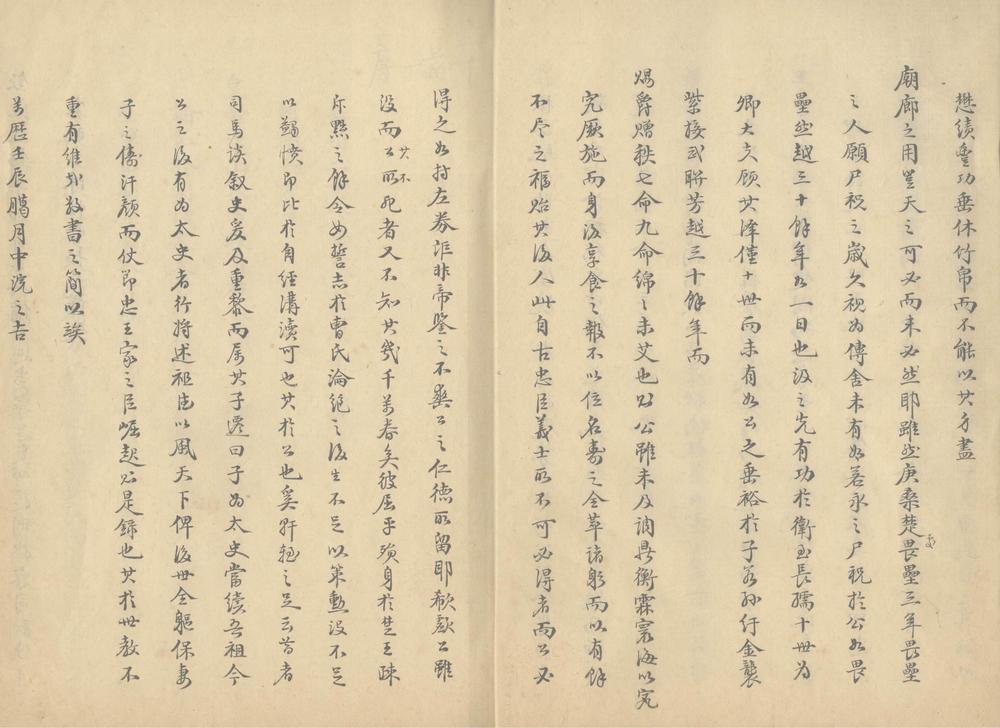 懋績豊功垂休竹帛而不能以其方盡
廟廊之用豈天之可必而未必然耶雖然庚桑楚畏壘三年畏壘
之人願尸祝之歲久視为傳舍未有如若永之尸祝於公如畏
壘然越三十餘年如一日也汲之先有功於衛至長孺十世为
卿大夫顾其澤僅十世而未有如公之垂裕於子若孫行金襲
紫接武聯芳越三十餘年而
賜爵贈秩七命九命綿之未艾也公公雖未及調鼎衡霖寰海以究
究厥施而身後享食之報不以位名壽之全萃諸躬而以有餘
不尽之福貽其後人此自古忠臣義士所不可必得者而公必
得之如持左券詎非帝鑒之不爽公之仁德所留耶欷歔公雖
没而公其不死者又不知其幾千萬春矣彼屈平殞身於楚王疎
斥黙之餘令女誓志於曹氏淪絶之後生不足以策勲没不足
以蠲憤即比於自經溝瀆可也其於公也奚軒輊之足云昔者
司馬谈叙史爰及重黎而属其子遷曰子为太史當續吾祖今
公之後有为太史者行将述祖德以風天下俾後世全軀保妻
子之儔汗颜而仗節忠王家之臣崛起公是錄也其於世教不
重有維哉敬書之簡以俟
萬歷壬辰臈月中浣之吉